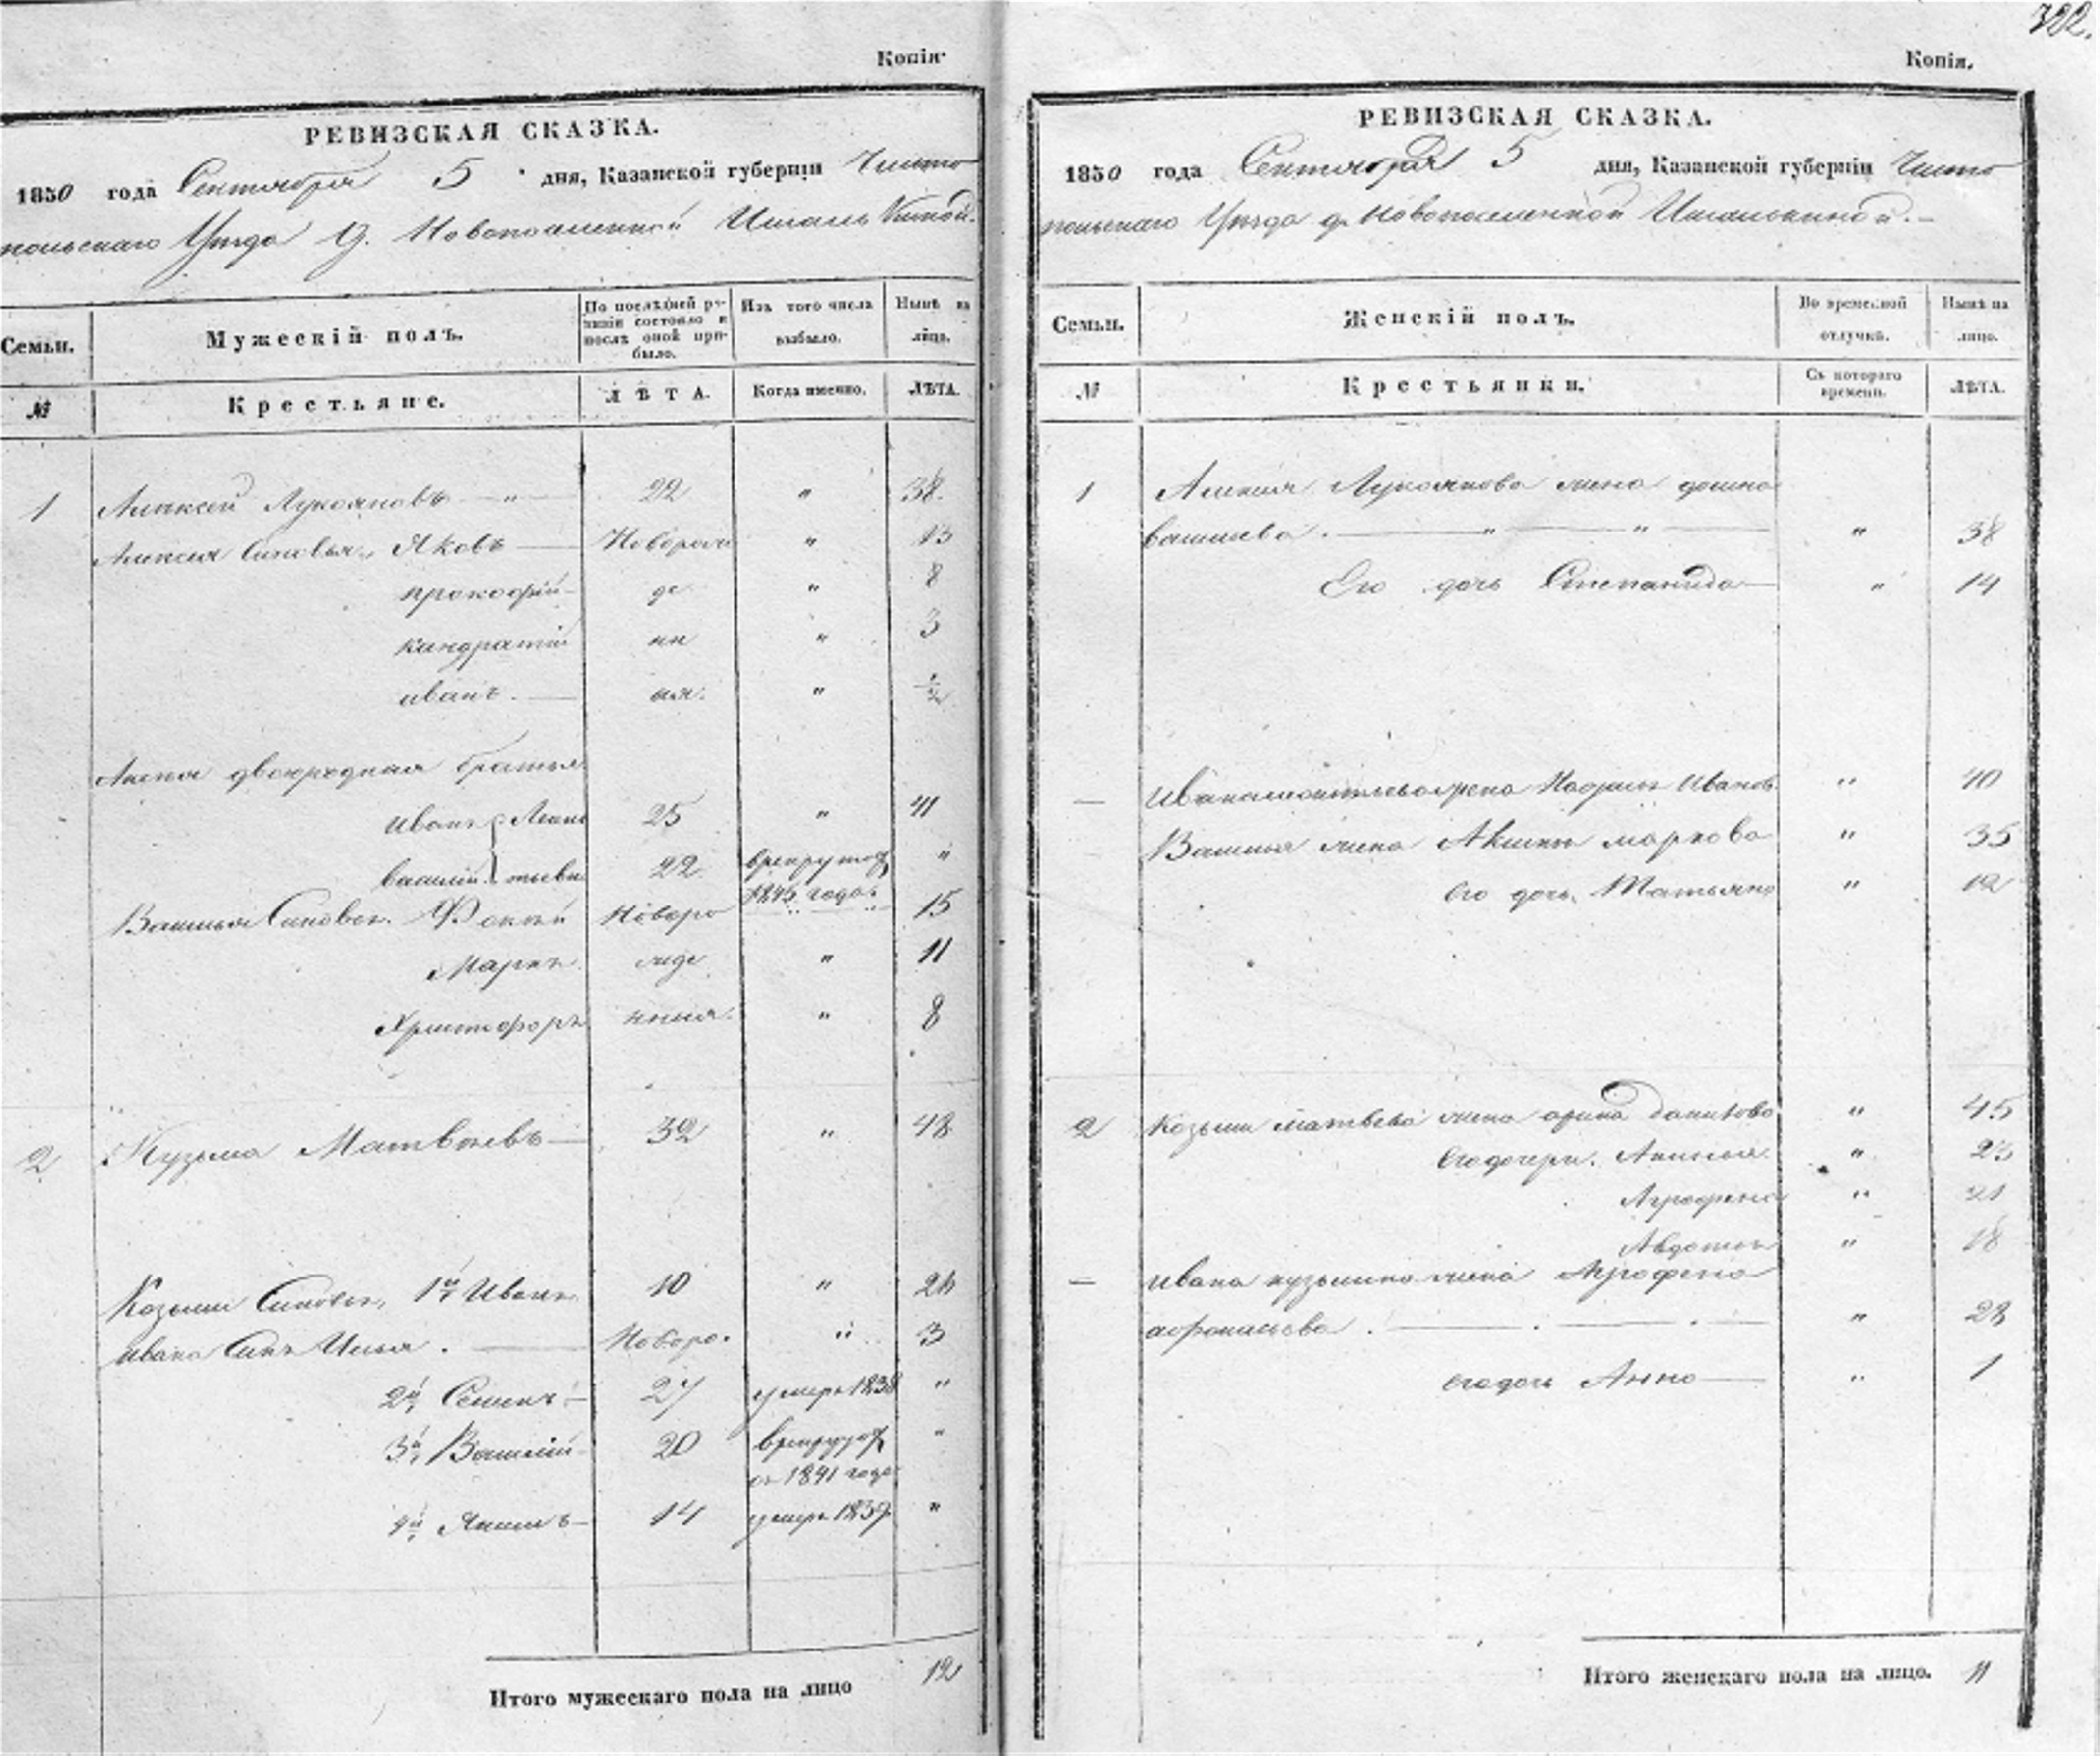 322.
Копія
РЕВИЗСКАЯ СКАЗКА.
1850 года Сентября 5 дня, Казанской губерніи Чисто
польскаго Уезда Д. Новопоселенной
Семьи.
Мужескій полъ.
По послѣдней ре-
визіи состояло и
послѣ оной при-
было.
Изъ того числа
выбыло.
Нынѣ на
лицо.
№
Крестьяне.
ЛѢТА.
Когда именно.
ЛѢТА.
1 Алексей Лукояновъ — " — 22 " 38.
Алексея Сыновья, Яковъ — Новорож " 13
прокофій — де " 8
кандратій нн " 3
иванъ. — ыя. " 1/2
двоюродная братья
иванъ Леонт 25 " 41
василій тьевы 22 врекруты "
1845 года
Василья Сыновья. новоро 15
Маркъ жде " 11
Христофоръ нныя. " 8
2 Кузьма Матвѣевъ — 32 " 48
Козьмы Сыновья, 1й Иванъ 10 " 26
ивана Сынъ Илья . — Новоро. " 3
2й Семенъ — 27 умеръ 1838 "
3й Василій 20 врекруты "
1841 года
4й 14 умеръ 1837 "
Итого мужескаго пола на лицо 12
Копія.
РЕВИЗСКАЯ СКАЗКА.
1850 года Сентября 5 дня, Казанской губерніи Чисто
польскаго Уезда д. Новопоселенной
Семьи.
Женскій полъ.
Во временной
отлучкѣ.
Нынѣ на
лицо.
№
Крестьянки.
Съ котораго
времени.
ЛѢТА.
1 Алексея Лукоянова жена
васильева . — " — " — " 38
Его дочь Степанида — " 14
— Ивана Иванов " 40
Василья жена маркова " 35
его дочь, Татьяна " 12
2 Козьмы матвеева жена арина данилова " 45
его дочери. " 23
Агрофена " 21
Авдотья " 18
— ивана кузьмина жена Агрофена
афонасьева . — . — . — " 28
его дочь Анна — " 1
Итого женскаго пола на лицо. 11